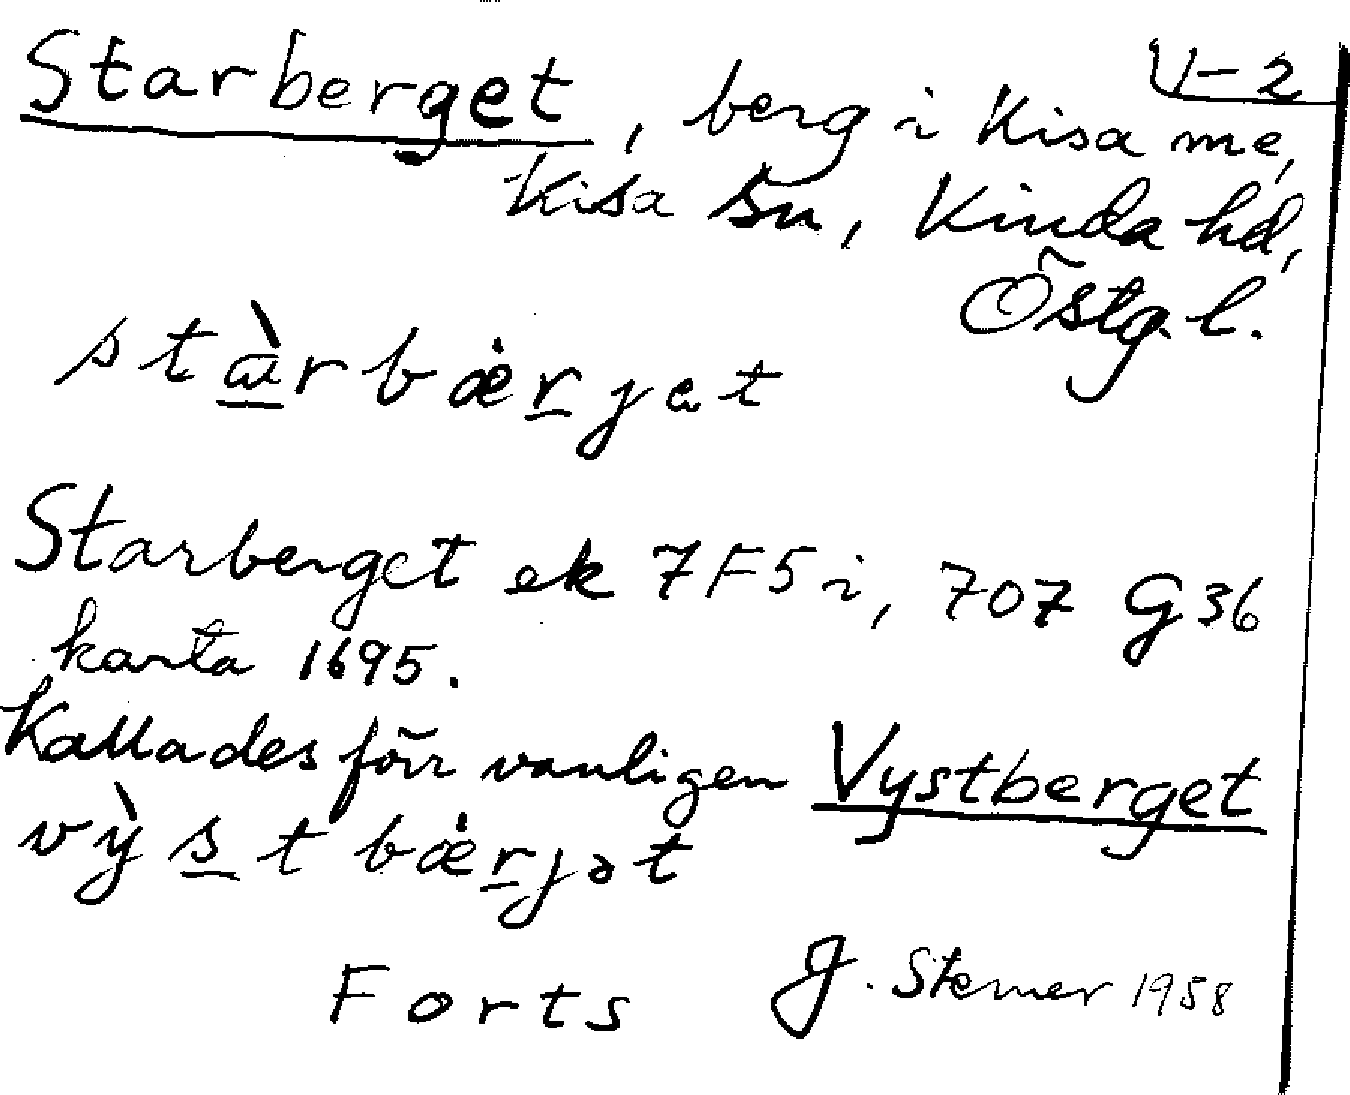 V-2
Starberget, berg i Kisa me,
Kisa sn, Kinda hd,
Östg. l.
stàrbæ̇rjet
Starberget ek 7F5i, 707 G36
karta 1695.
Kallades förr vanligen Vystberget
vỳstbæ̇rjət
Forts J. Sterner 1958